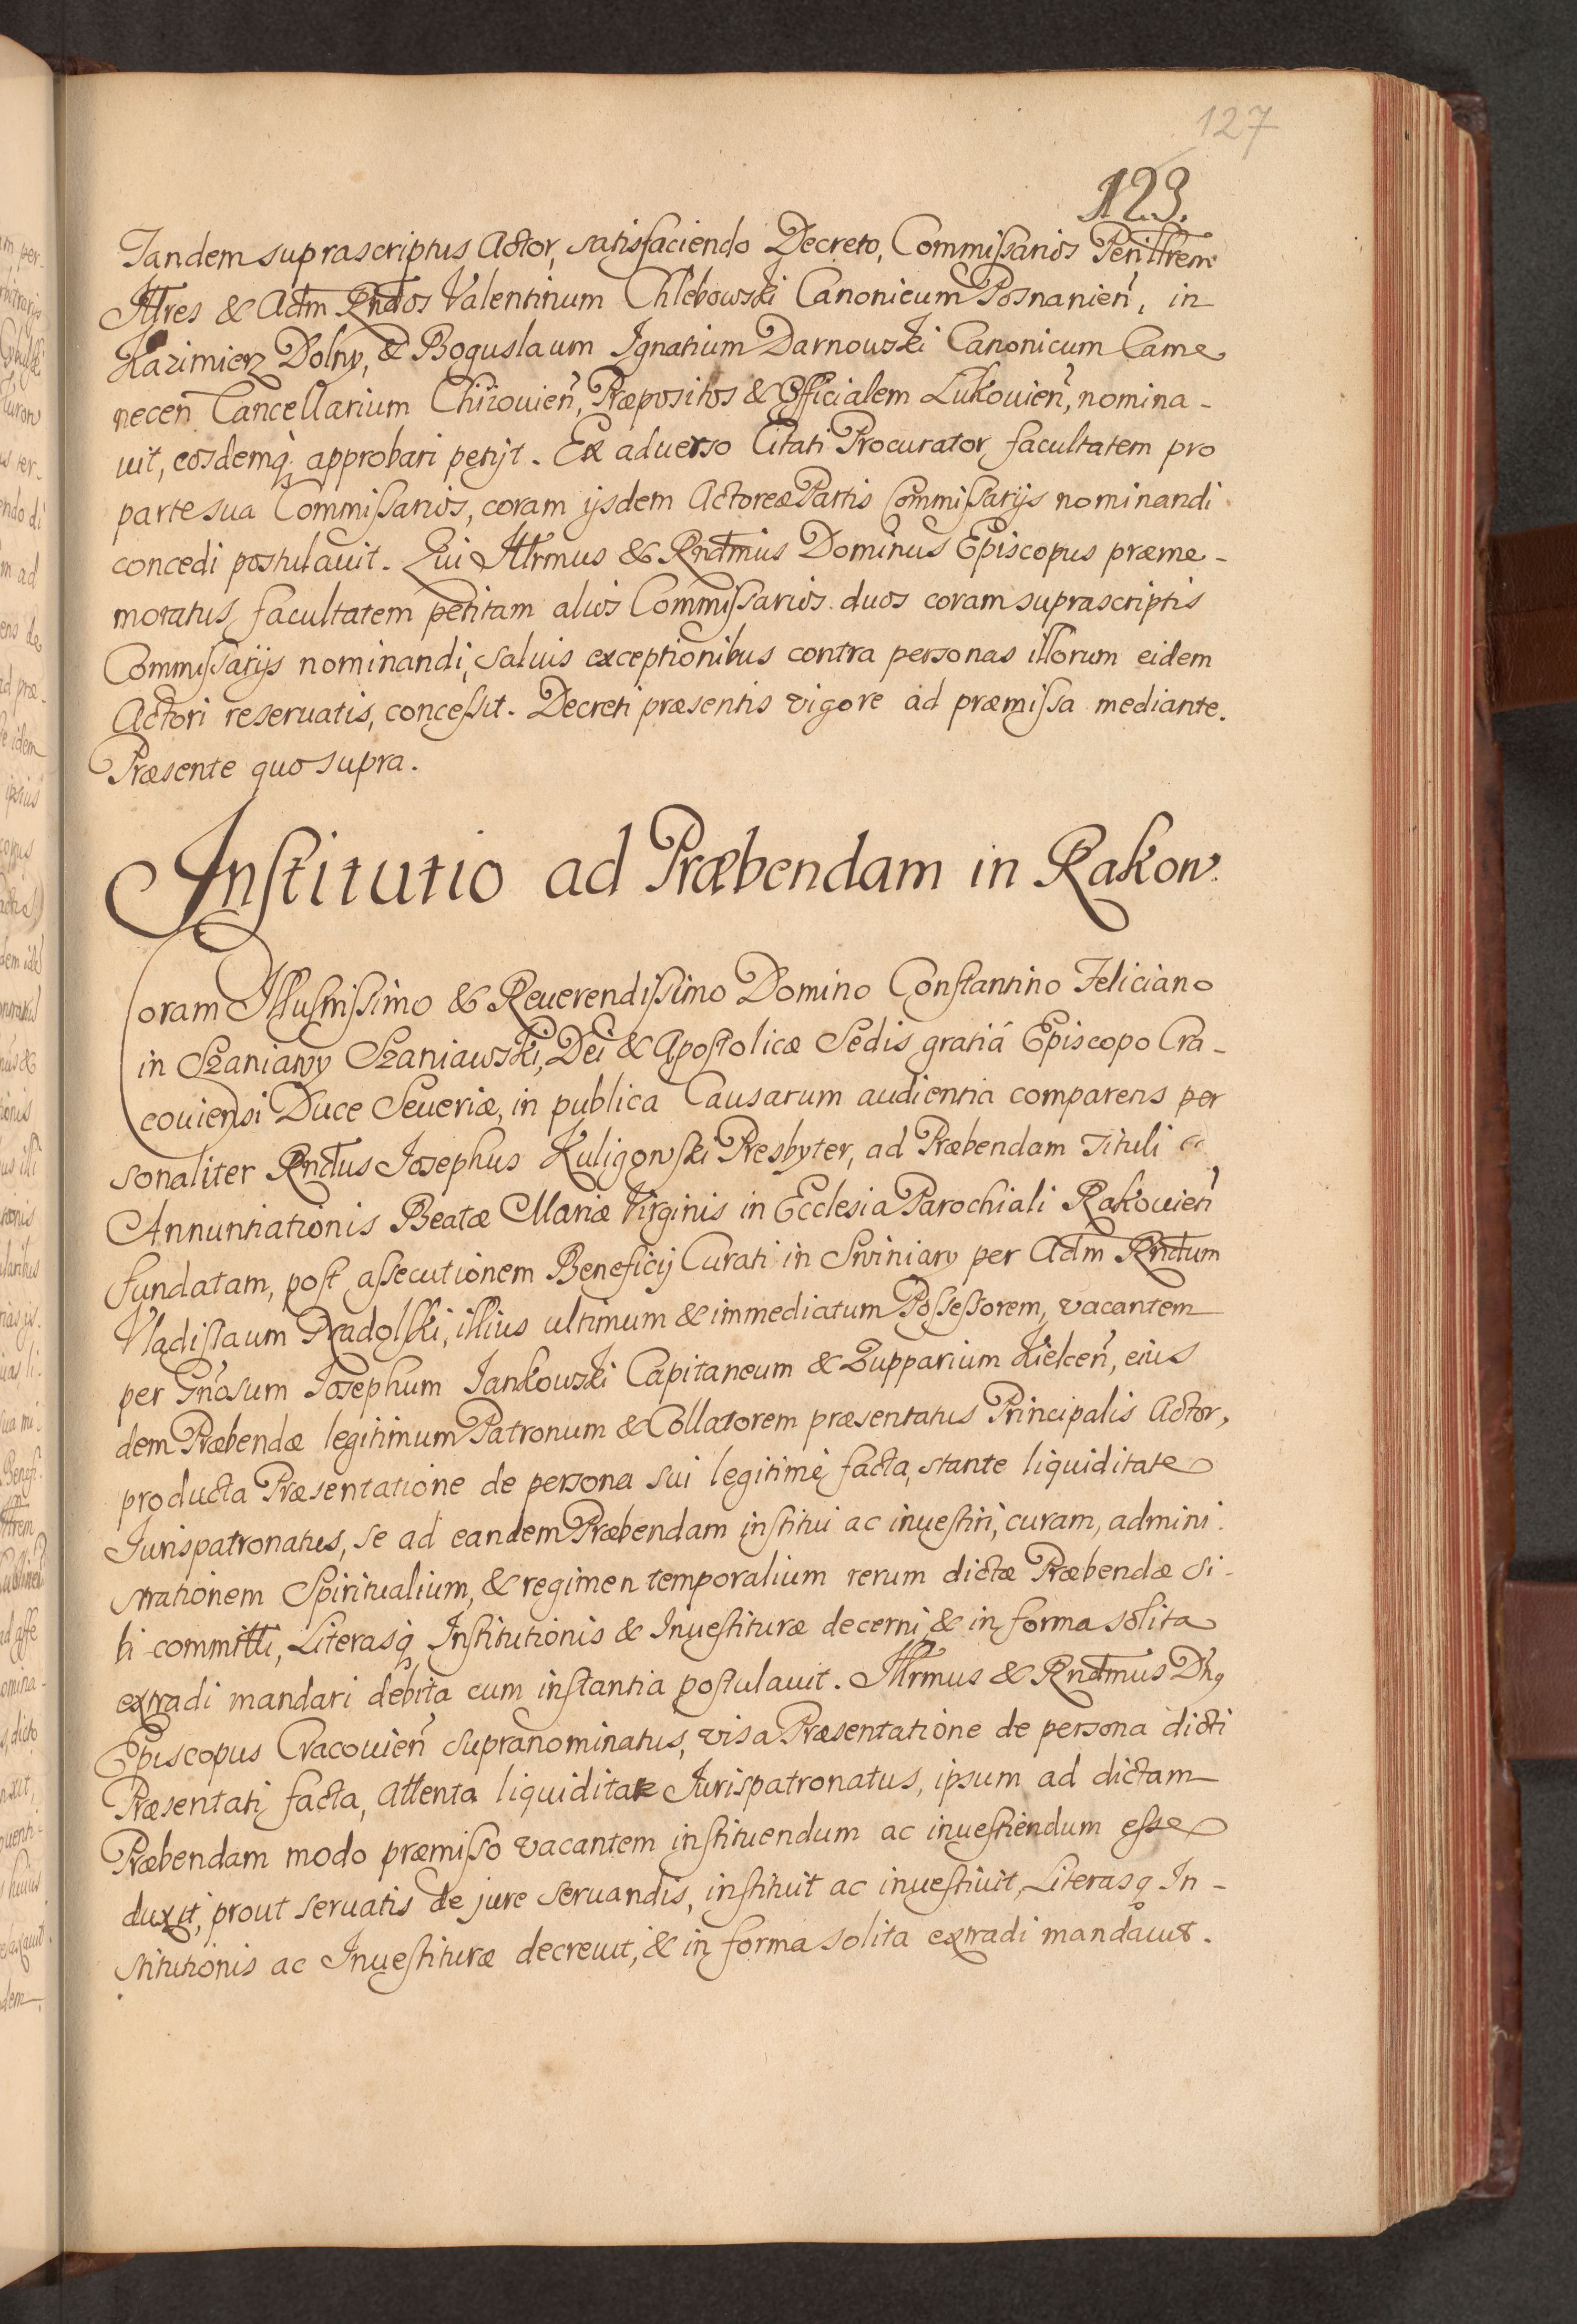 127
123.
Tandem suprascriptus Actor, satisfaciendo Decreto, Commissarios Perillrem
Illres & Adm Rndos Valentinum Chlebowski Canonicum Posnanien, in
Kazimierz Dolny, & Boguslaum Ignatium Darnowski Canonicum Came
necen Cancellarium Chiiouien, Præpositos & Officialem Lukouien, nomina-
uit, eosdemq approbari petijt. Ex aduerso Citati Procurator, facultatem pro
parte sua Commissarios, coram ijsdem Actoreæ Partis Commissarijs nominandi
concedi postulauit. Qui Illrmus & Rndmus Dominus Episcopus præme-
moratus, facultatem petitam alios Commissarios duos coram suprascriptis
Commissarijs nominandi, saluis exceptionibus contra personas illorum eidem
Actori reseruatis, concessit. Decreti præsentis vigore ad præmissa mediante.
Præsente quo supra.
Institutio ad Præbendam in Rakow.
Coram Illustrissimo & Reuerendissimo Domino Constantino Feliciano
in Szaniawy Szaniawski, Dei & Apostolicæ Sedis gratiá Episcopo Cra-
couiensi Duce Seueriæ, in publica Causarum audientia comparens per
sonaliter Rndus Josephus Kuligowski Presbyter, ad Præbendam Tituli
Annuntiationis Beatæ Mariæ Virginis in Ecclesia Parochiali Rakouien
fundatam, post assecutionem Beneficij Curati in Swiniary per Adm Rndum
Vladislaum Radolski, illius ultimum & immediatum Possessorem, vacantem
per Gnosum Josephum Jankowski Capitaneum & Zupparium Kielcen, eius
dem Præbendæ legitimum Patronum & Collatorem præsentatus Principalis Actor,
producta Præsentatione de persona sui legitimè facta, stante liquiditate
Jurispatronatus, se ad eandem Præbendam institui ac inuestiri, curam, admini
strationem Spiritualium, & regimen temporalium rerum dictæ Præbendæ si-
bi committi, Literasq Institutionis & Inuestituræ decerni, & in forma solita
extradi mandari debita cum instantia postulauit. Illrmus & Rndmus Dnq
Episcopus Cracouien supranominatus, visa Præsentatione de persona dicti
Præsentati facta, attenta liquiditate Jurispatronatus, ipsum ad dictam
Præbendam modo præmisso vacantem instituendum ac inuestiendum esse
duxit, prout seruatis de jure seruandis, instituit ac inuestiuit, Literasq In-
stitutionis ac Inuestituræ decreuit, & in forma solita extradi mandauit.